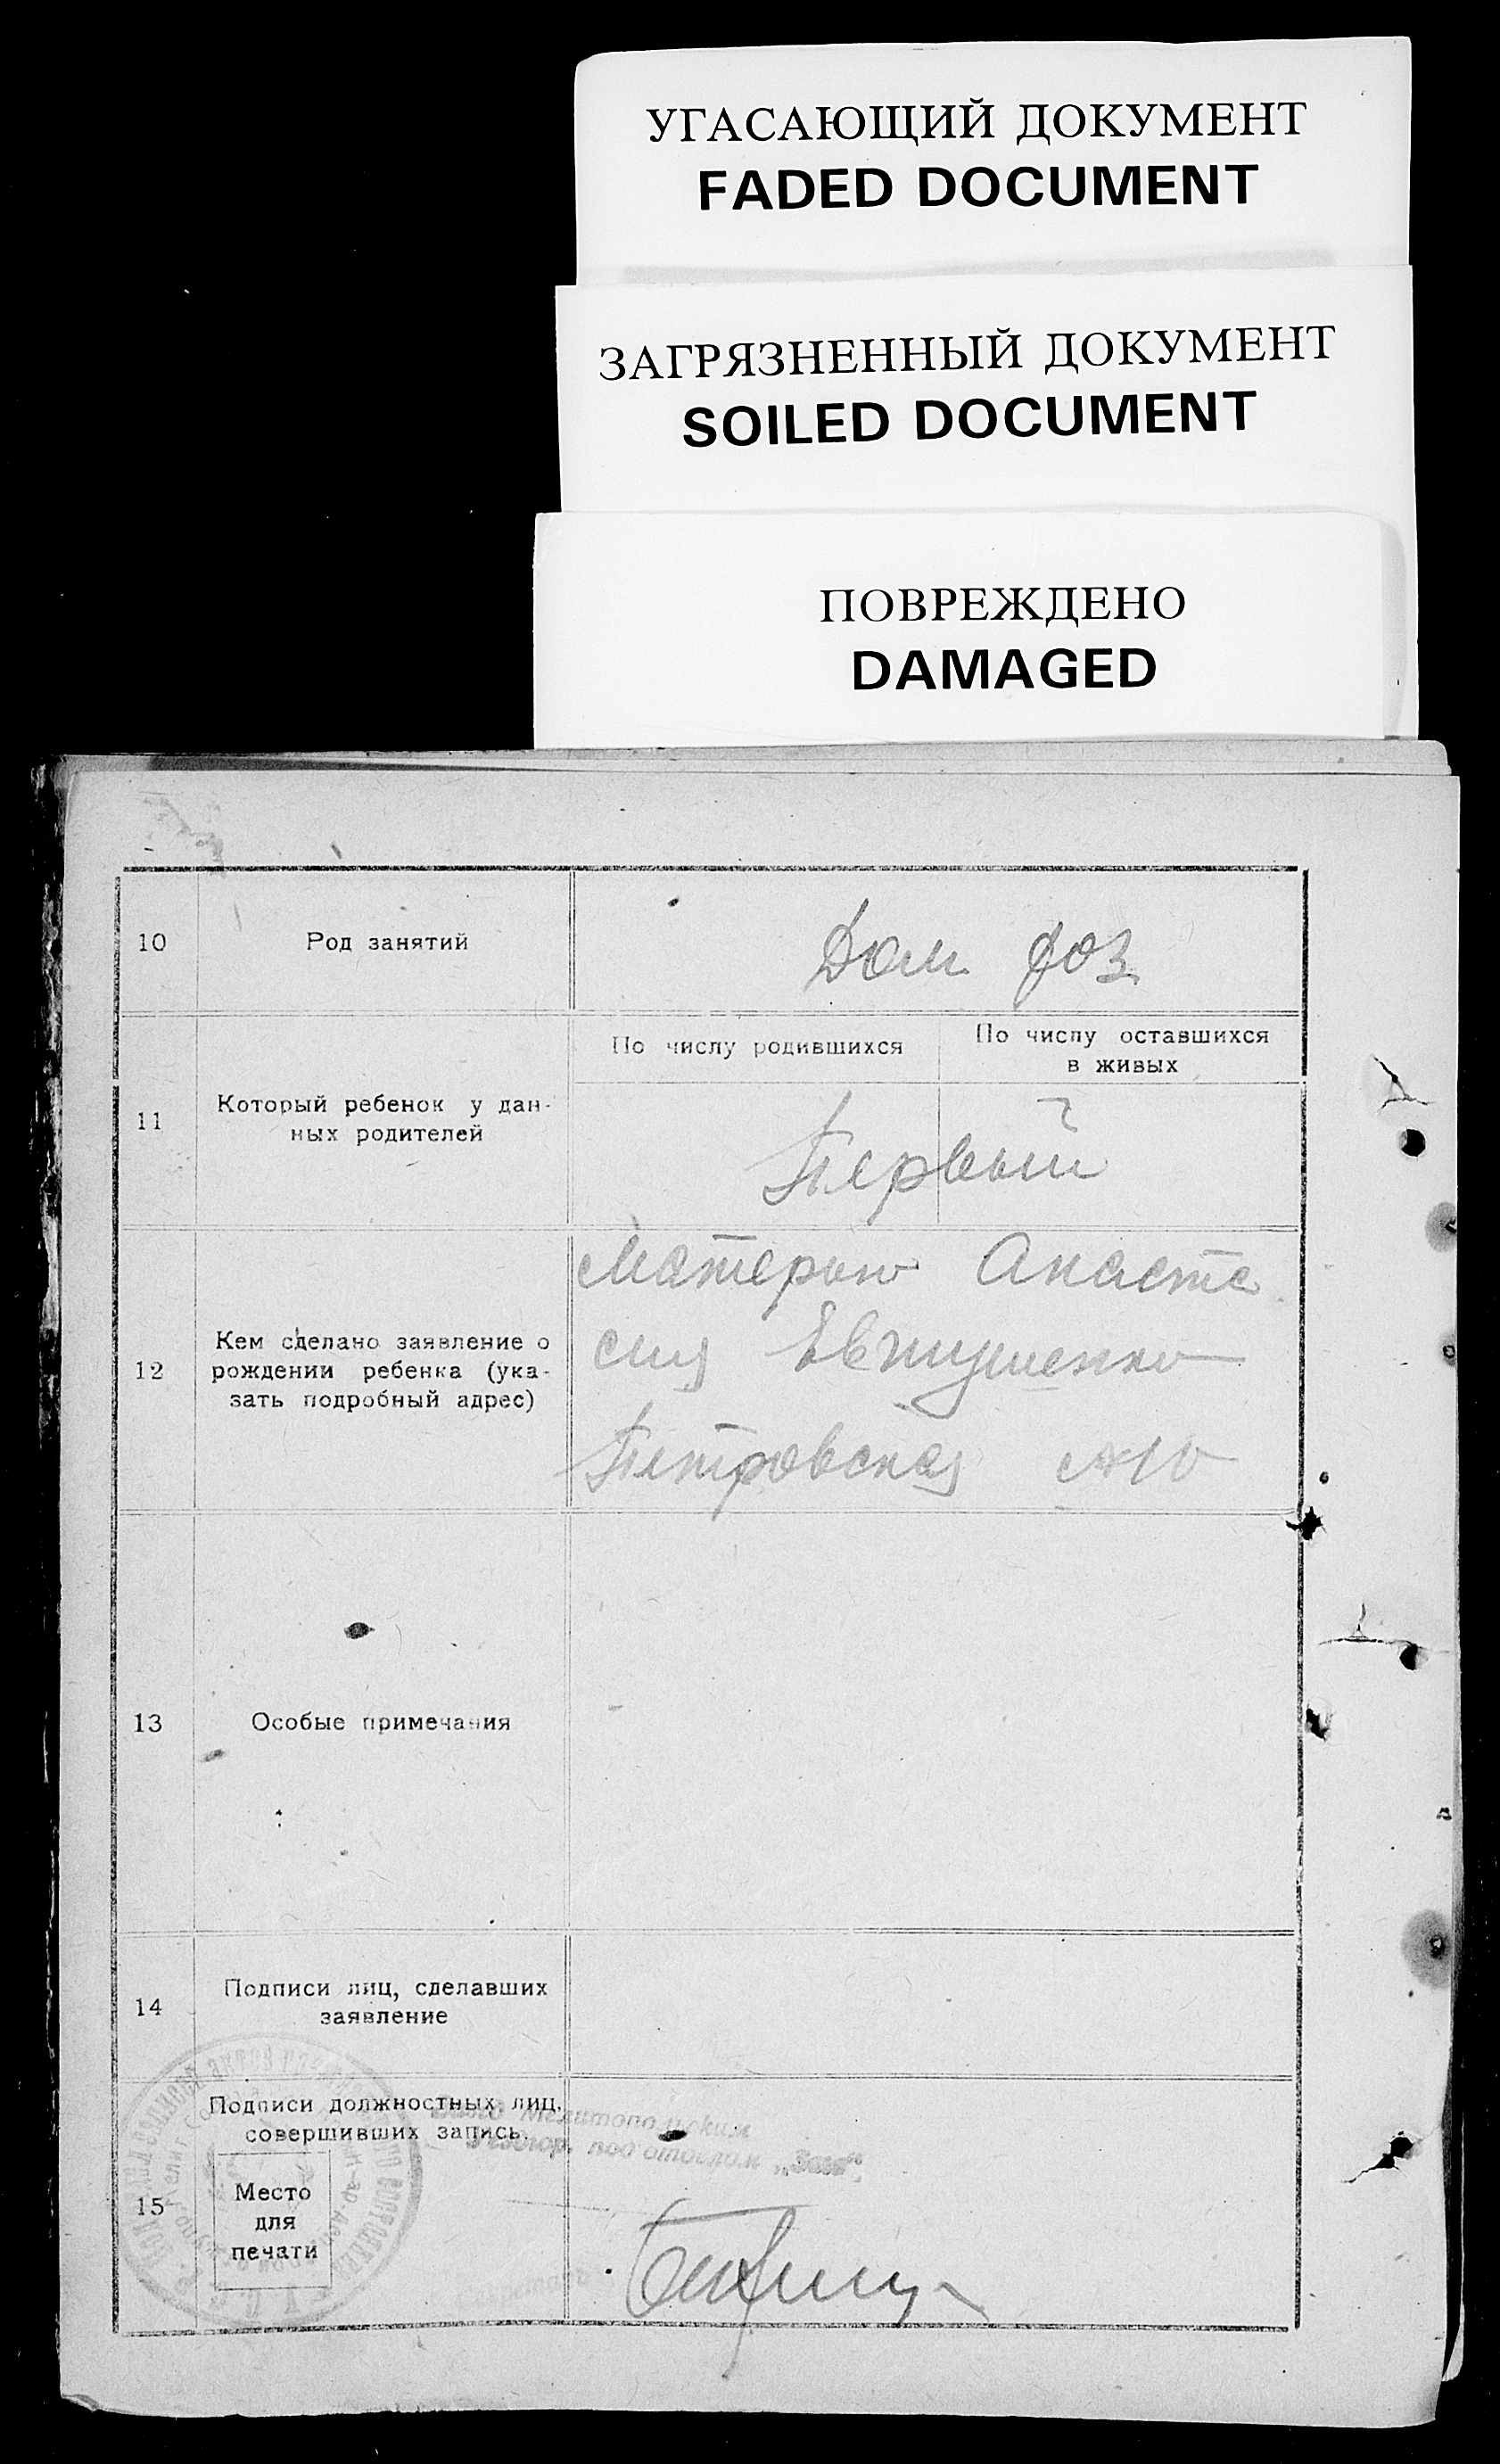 УГАСАЮЩИЙ ДОКУМЕНТ
FADED DOCUMENT
ЗАГРЯЗНЕННЫЙ ДОКУМЕНТ
SOILED DOCUMENT
ПОВРЕЖДЕНО
DAMAGED
10
Род занятий
Дом хоз
11
Который ребенок у дан-
ных родителей
По числу родившихся
По числу оставшихся
в живых
Первый
12
Кем сделано заявление о
рождении ребенка (ука-
зать подробный адрес)
Матерью Анаста
сия Евтушенко
Петровская
13
Особые примечания
14
Подписи лиц, сделавших
заявление
15
Подписи должностных лиц,
совершивших запись.
Место
для
печати
Мелитопольским
под отделом „Загс“